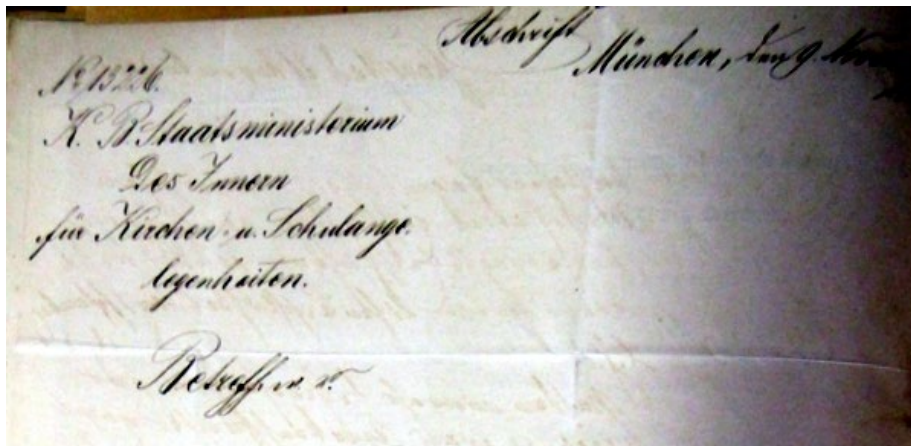 Abschrift
München, den 9. Nov
No. 13226.
K. B. Staatsministerium
Des Innern
für Kirchen- u. Schulange-
legenheiten.
Betreff. w. o.